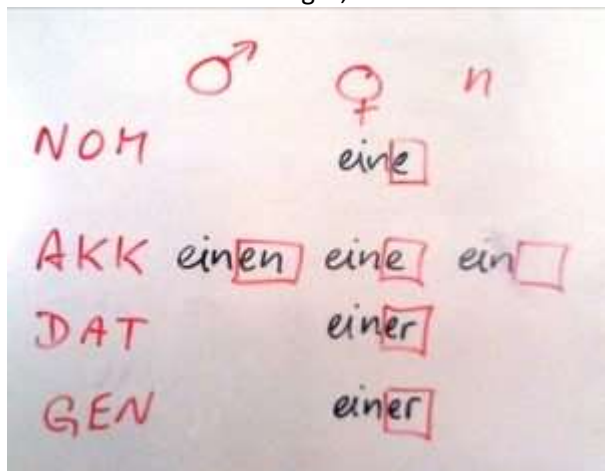 ♂ ♀ n
NOM eine
AKK einen eine ein
DAT einer
GEN einer